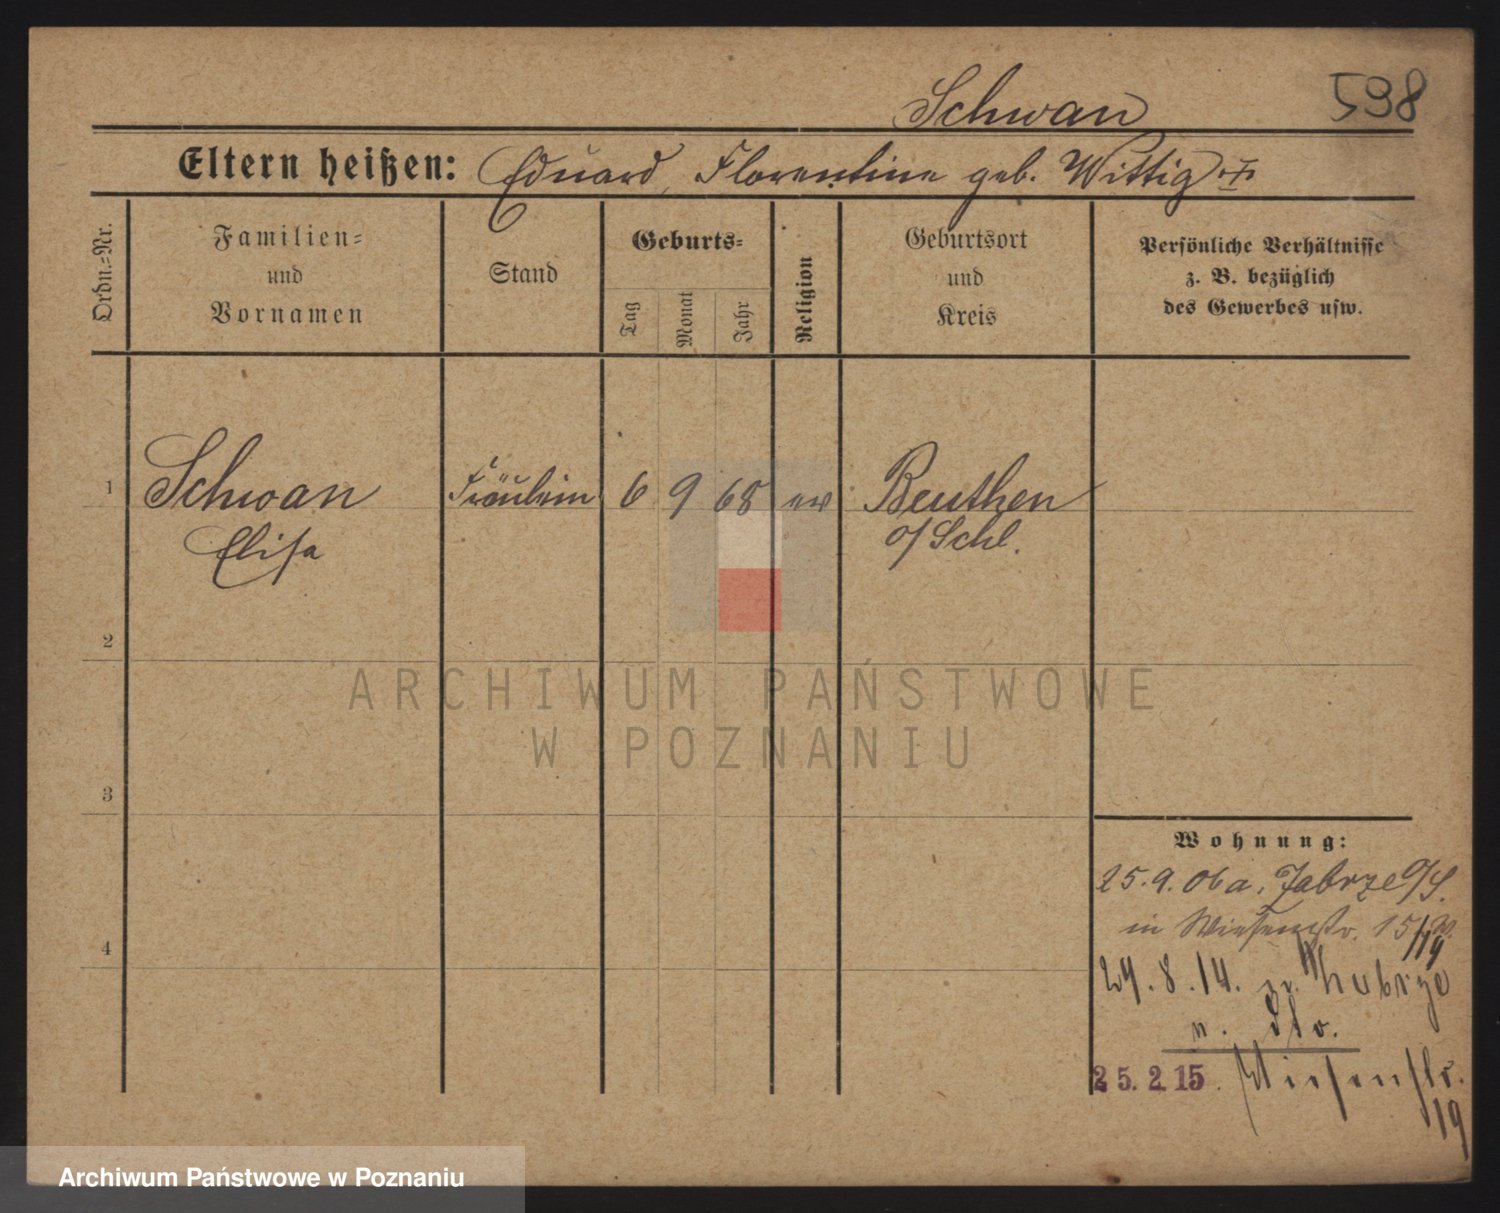 Schwan
598
Eltern heißen: Eduard, Florentine geb. Wittig
Ordn.-Nr.
Familien-
und
Vornamen
Stand
Geburts-
Tag
Monat
Jahr
Religion
Geburtsort
und
Kreis
Persönliche Verhältnisse
z. B. bezüglich
des Gewerbes usw.
1
Schwan
Elisa
Fräulein
6
9
68
ev
Beuthen
o/Schl.
2
3
4
Wohnung:
25.9.06 a. Zabrze O/S.
in Wiesenstr. 15
29.8.14.
n.
25.2.15. Wiesenstr.
19
ARCHIWUM PAŃSTWOWE
W POZNANIU
Archiwum Państwowe w Poznaniu